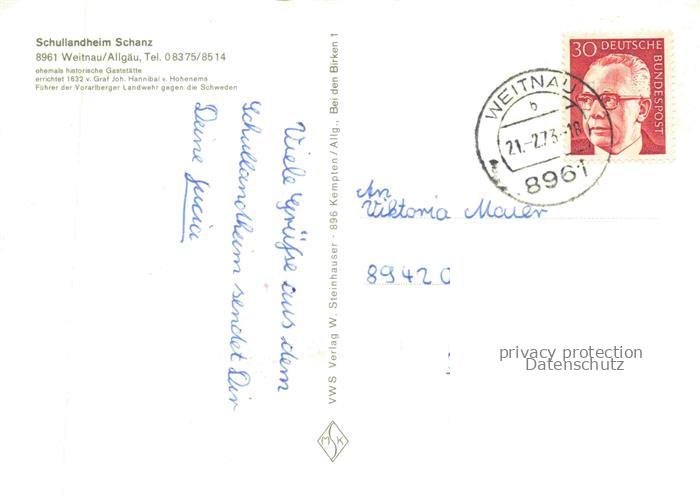 Schullandheim Schanz
8961 Weitnau/Allgäu, Tel. 08375/8514
ehemals historische Gaststätte
errichtet 1632 v. Graf Joh. Hannibal v. Hohenems
Führer der Vorarlberger Landwehr gegen die Schweden
Viele Grüße aus dem
Schullandheim sendet Dir
Deine Lucia
VWS Verlag W. Steinhauser · 896 Kempten/Allg., Bei den Birken 1
MSK
30 DEUTSCHE
BUNDESPOST
WEITNAU
b
21.-2.73-18
8961
An
Viktoria Maier
8942 O
privacy protection
Datenschutz